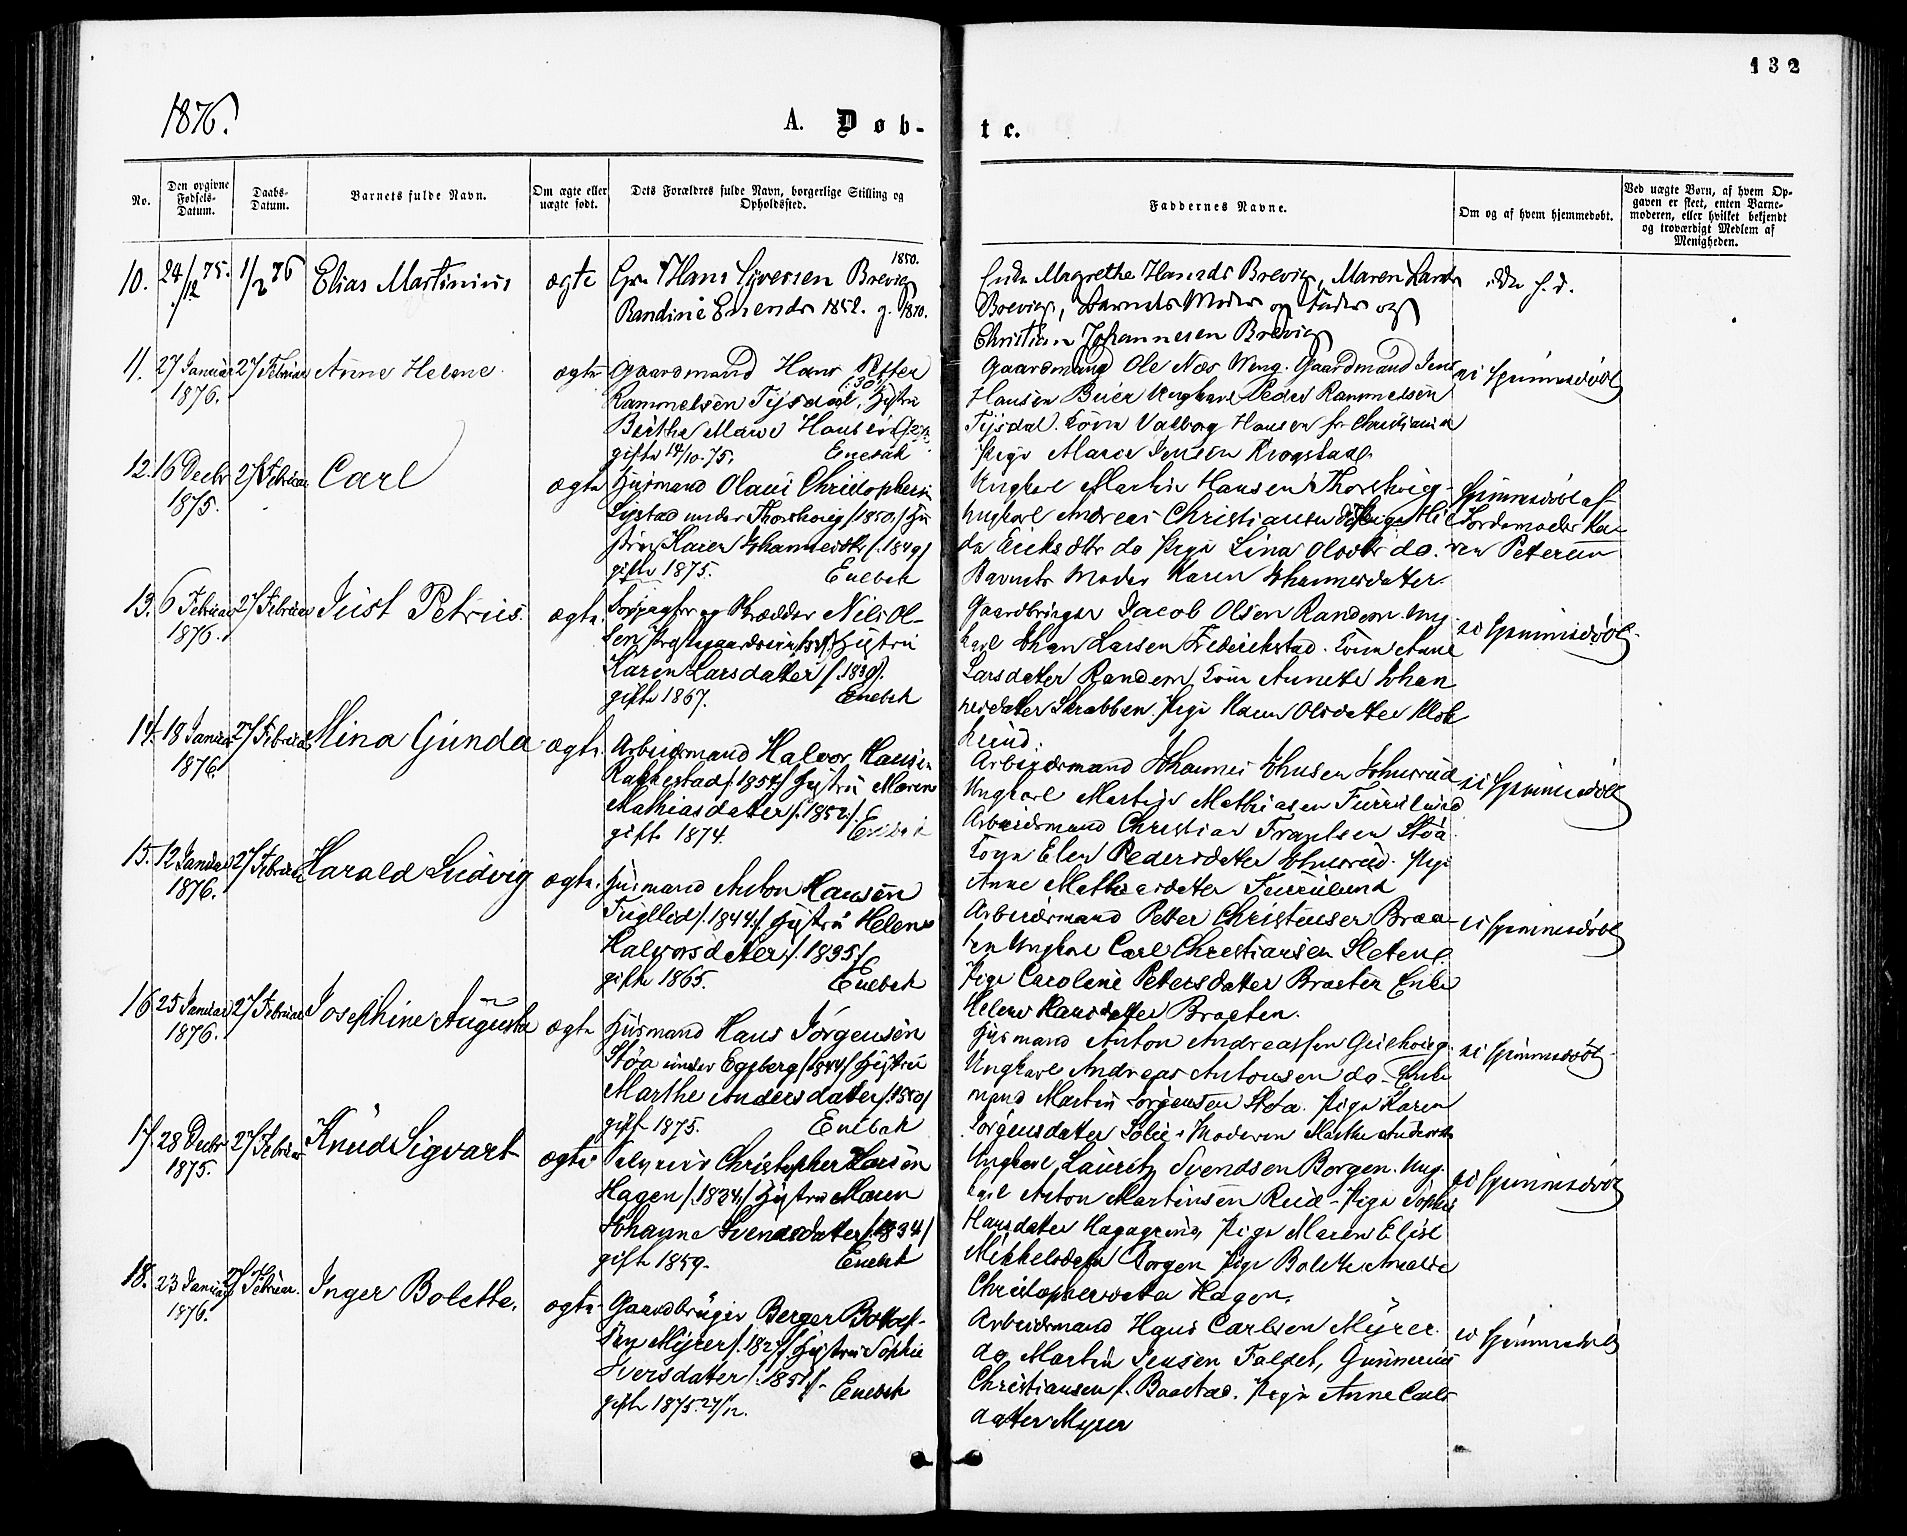 132
1876.
A. Døb-
te.
No.
Den opgivne
Fødsels-
Datum.
Daabs-
Datum.
Barnets fulde Navn.
Om ægte eller
uægte født.
Dets Forældres fulde Navn, borgerlige Stilling og
Opholdssted.
Faddernes Navne.
Om og af hvem hjemmedøbt.
Ved uægte Børn, af hvem Op-
gaven er skeet, enten Barne-
moderen, eller hvilket bekjendt
og troværdigt Medlem af
Menigheden.
10.
24/12 75.
1/2 76
Elias Martinius
ægte
1850.
Hans Syversen Brevig
Randine 1852. g. 1870.
Magrethe Brevig, Maren
Brevig, Barnets Moder og Fader og
Christian Johannesen Brevig
ikke h. d.
11.
27 Januar
1876.
27 Februar
Anne Helene
ægte
Gaardmand Hans Petter
Rammelsen Tysdal, Hustru
Berthe Marie
gifte 14/10 75. Enebak
Gaardmand Ole Næs Weng. Gaardmand Jens
Hansen Beier Ungkarl Peder Rammelsen
Tysdal. Konen Valborg Hansen fr Christiania
Pige Maren Jensen Krogstad.
ei Hjemmedøbt
12.
16 Decbr
1875.
27 Februar
Carl
ægte
Husmand Olaus Christophersen
under Thorshoug /:1850:/ Hu
stru Karen Johannesdtr /:1849:/
gifte 1875. Enebak
Ungkarl Martin Hansen Thorshoug
Ungkarl Andreas Christiansen Pige Hil
da Eriksdtr do Pige Lina Olsdtr do.
Barnets Moder Karen Johannesdatter.
Hjemmedøbt af
Jordemoder Ka-
ren Petersen
13.
6 Februar
1876.
27 Februar
Just Petrus.
ægte.
og Skrædder Nils Ol-
sen Hustru
Karen Larsdatter /:1839:/.
gifte 1867. Enebak
Gaardbruger Jacob Olsen Randem. Ung
karl Johan Larsen Frederikstad. Kone Anne
Larsdatter Randem Kone Annette Johan
nesdatter Skrabben Pige Karen Olsdatter
ei Hjemmedøbt.
14.
18 Januar
1876.
27 Februar
Mina Gunda
ægte.
Arbeidsmand Halvor Hansen
Rakkestad /:1854:/ Hustru Maren
Mathiasdatter /:1852:/.
gifte 1874. Enebak
Arbeidsmand Johannes Johnsen Johnsrud
Ungkarl Martin Mathiasen Furrulund
Arbeidsmand Christian Støa.
Kone Elen Pedersdatter Johnsrud. Pige
Anne Mathiasdatter Furrulund
ei Hjemmedøbt
15.
12 Januar
1876.
27 Februar
Harald Ludvig
ægte.
Husmand Anton Hansen
Fuglli /:1844:/ Hustru Helene
Halvorsdatter /:1835:/
gifte 1865. Enebak
Arbeidsmand Petter Christensen Braa-
ten Ungkarl Carl Christiansen Sletene
Pige Caroline Petersdatter Braaten Enke
Helene Hansdatter Braaten.
ei Hjemmedøbt
16
25 Januar
1876.
27 Februar
Josephine Augusta
ægte
Husmand Hans Jørgensen
Støa under Egeberg /:1844:/ Hustru
Marthe Andersdatter /:1850:/
gift 1875. Enebak
Husmand Anton Andreassen
Ungkarl Andreas Antonsen do. Enke
mand Martin Jørgensen Støa. Pige Karen
Jørgensdatter Moderen Marthe Andersdtr
ei Hjemmedøbt.
17.
28 Decbr
1875.
27 Februar
Knud Sigvart
ægte
Selveier Christopher Larsen
Hagen /:1834:/ Hustru Maren
Johanne Svendsdatter /:1834:/
gifte 1859. Enebak
Ungkarl Lauritz Svendsen Borgen. Ung.
karl Anton Martinsen Rud - Pige Sophie
Hansdatter Pige Maren Elise
Mikkelsdatter Borgen Pige Bolette Amalie
Christophersdatter Hagen.
ei Hjemmedøbt
18.
23 Januar
1876.
27 Februar.
Inger Bolette.
ægte.
Gaardbruger Berger
sen Myrer /:182 :/ Hustru Sophie
Iversdatter /:1851:/.
gifte 1875 27/12. Enebak
Arbeidsmand Hans Carlsen Myrer.
do Martin Jensen Faldet, Gunnerius
Christiansen f. Baastad. Pige Anne Carls
datter Myrer
ei Hjemmedøbt